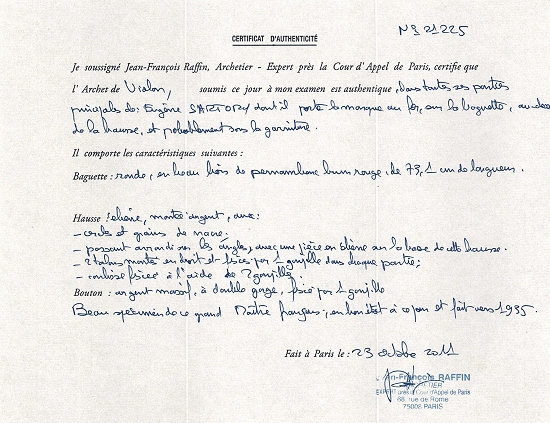 N° 21225
CERTIFICAT D'AUTHENTICITÉ
Je soussigné Jean-François Raffin, Archetier - Expert près la Cour d'Appel de Paris, certifie que
l'Archet de Violon, soumis ce jour à mon examen est authentique, dans toutes ses parties
principales de: Eugène SARTORY dont il porte la marque au fer, sur la baguette, au-dessus
de la hausse, et probablement sous la garniture.
Il comporte les caractéristiques suivantes :
Baguette : ronde, en beau bois de pernambouc brun rouge, de 73,1 cm de longueur.
Hausse : ébène, montée argent, avec:
- cercles et grains de nacre.
- passant arrondi sur les angles, avec une pièce en ébène sur la base de cette hausse.
- 2 talons montés en droit et fixés par 1 goupille dans chaque partie;
- coulisse fixée à l'aide de 2 goupilles
Bouton : argent massif, à double gorge, fixé par 1 goupille
Beau spécimen de ce grand Maître français, en bon état à ce jour et fait vers 1935.
Fait à Paris le : 23 octobre 2011
Jean-François RAFFIN
EXPERT près la Cour d'Appel de Paris
68, rue de Rome
75008 PARIS